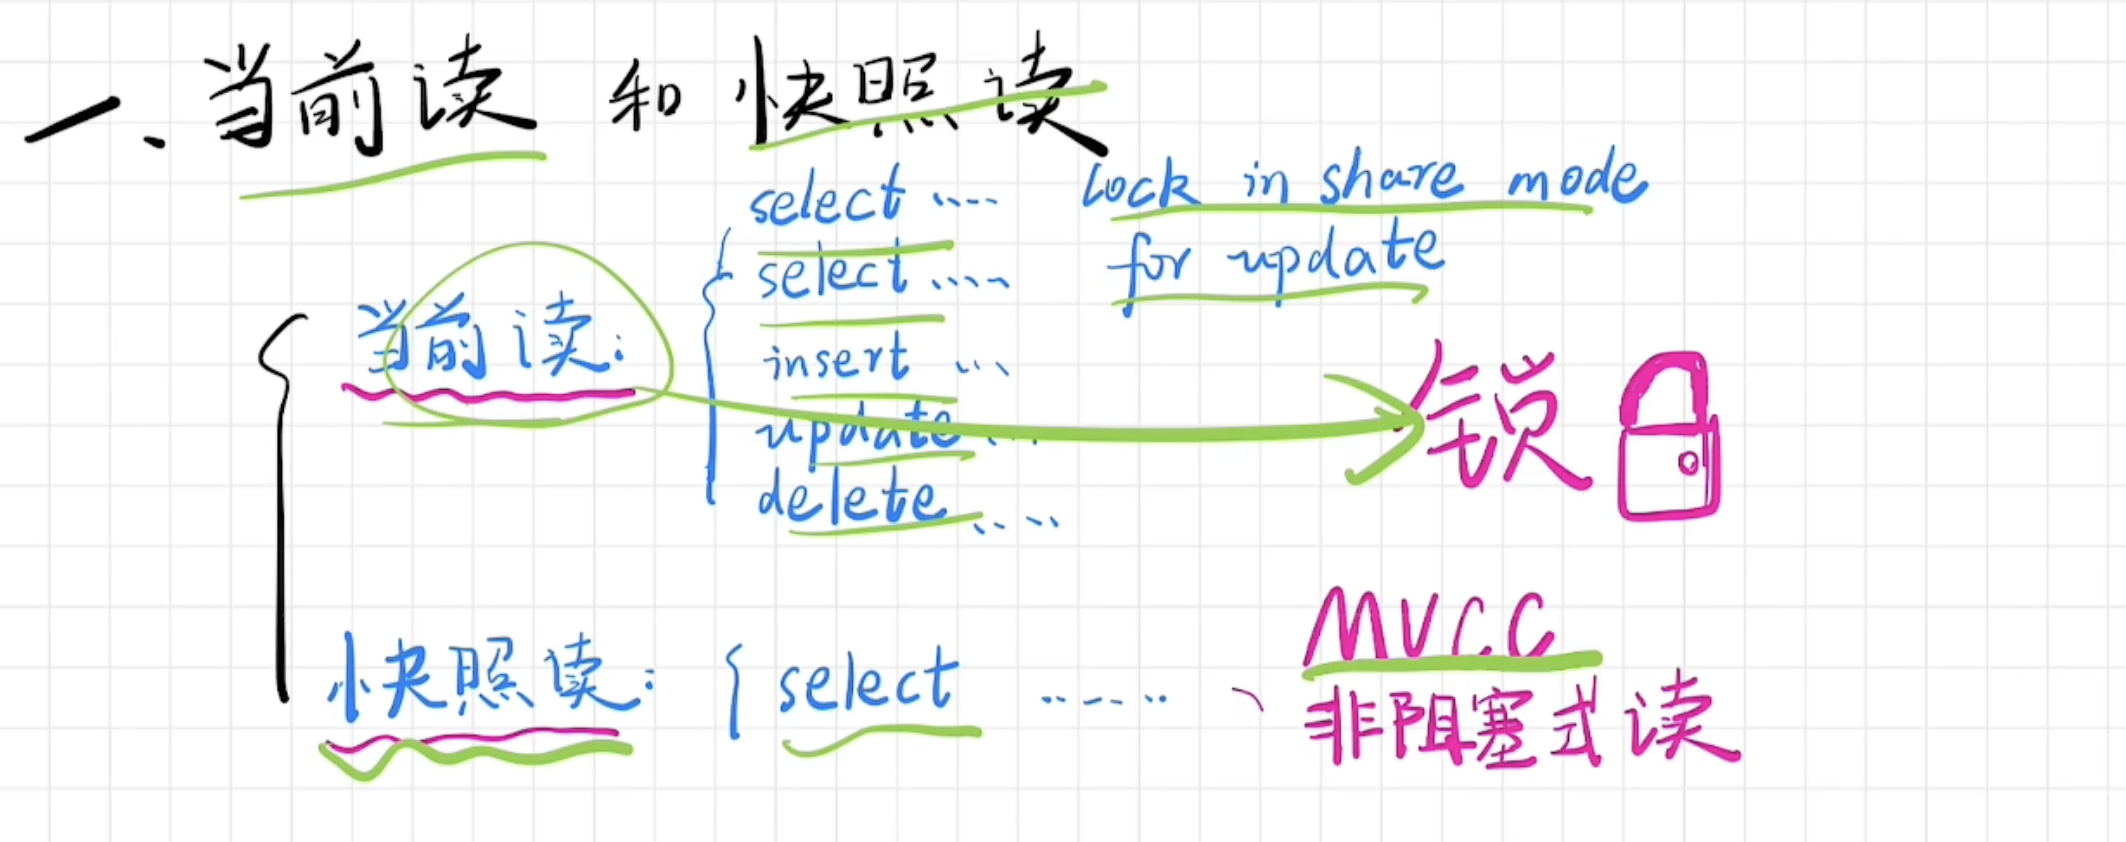 一、当前读 和 快照读
select .... lock in share mode
select .... for update
当前读：
insert ...
update ...
delete ....
锁
快照读： select ......
MVCC
非阻塞式读